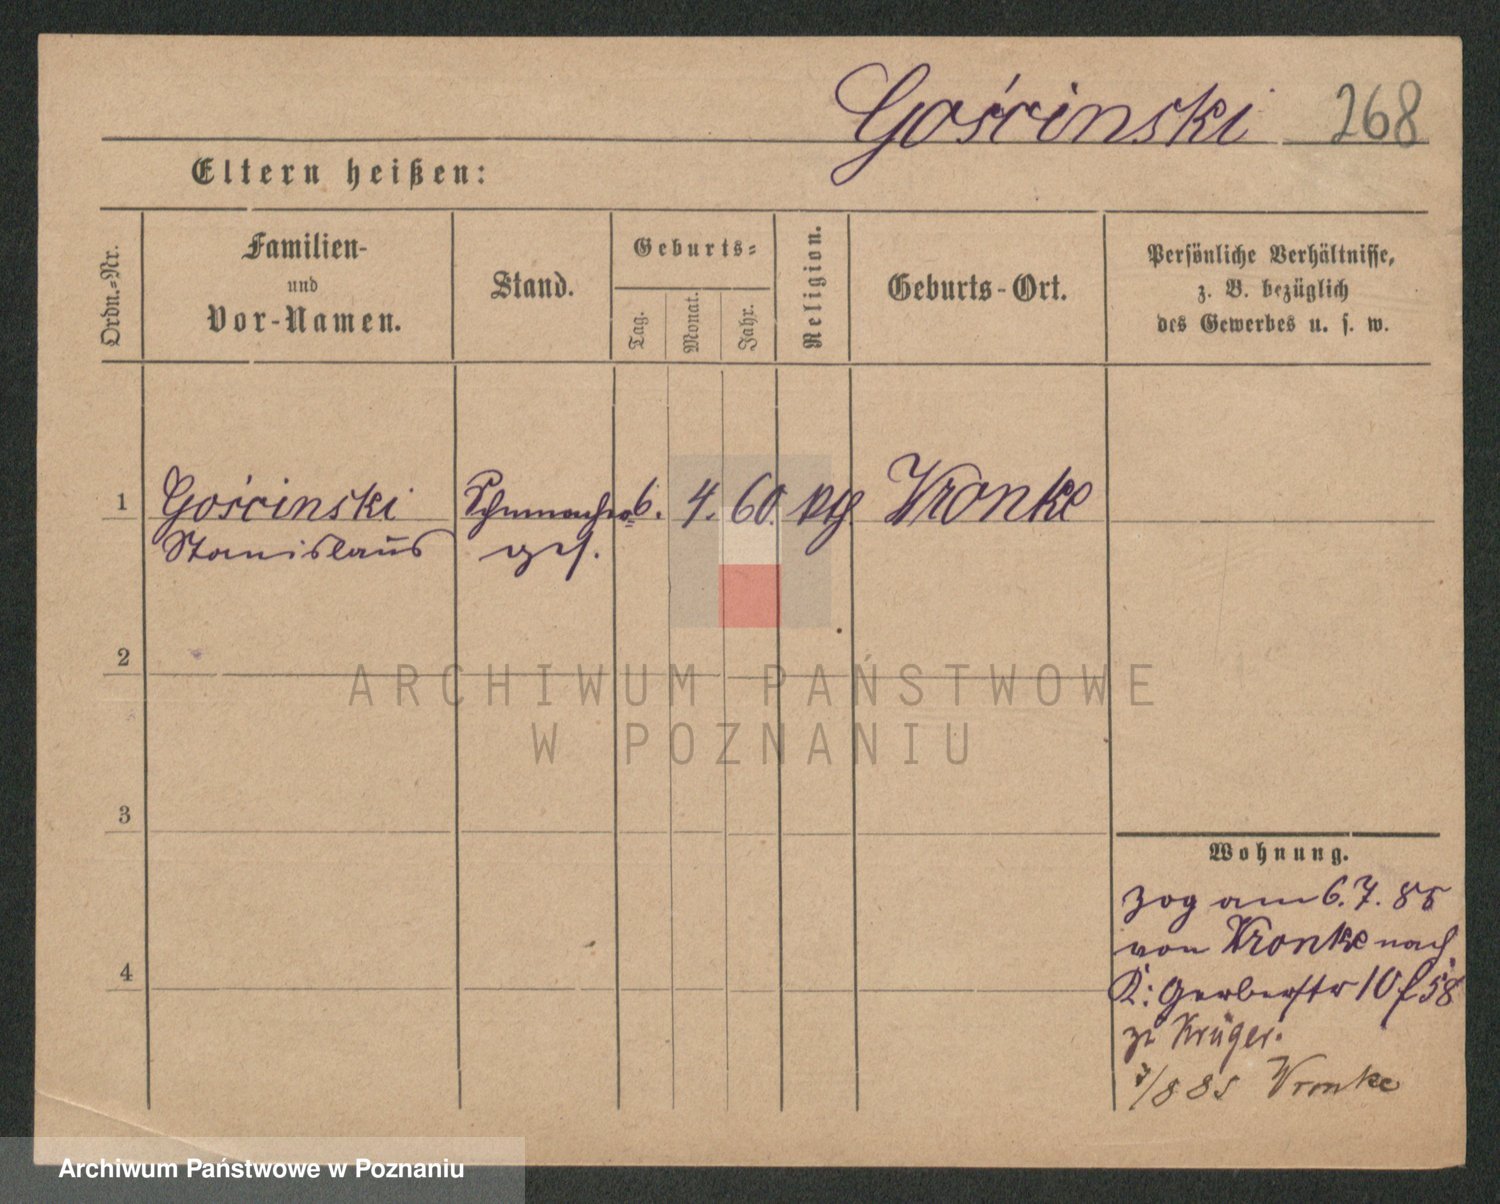 Gościnski 268
Eltern heißen:
Ordn.-Nr.
Familien-
und
Vor-Namen.
Stand.
Geburts-
Tag.
Monat.
Jahr.
Religion.
Geburts-Ort.
Persönliche Verhältnisse,
z. B. bezüglich
des Gewerbes u. s. w.
1 Gościnski Schumacher= 6. 4. 60. kth Wronke
Stanislaus ges.
2
3
4
ARCHIWUM PAŃSTWOWE
W POZNANIU
Wohnung.
zog am 6.7.85
von Wronke nach
K: Gerberstr 10 f 58
zu Krüger.
7/8 85 Wronke
Archiwum Państwowe w Poznaniu